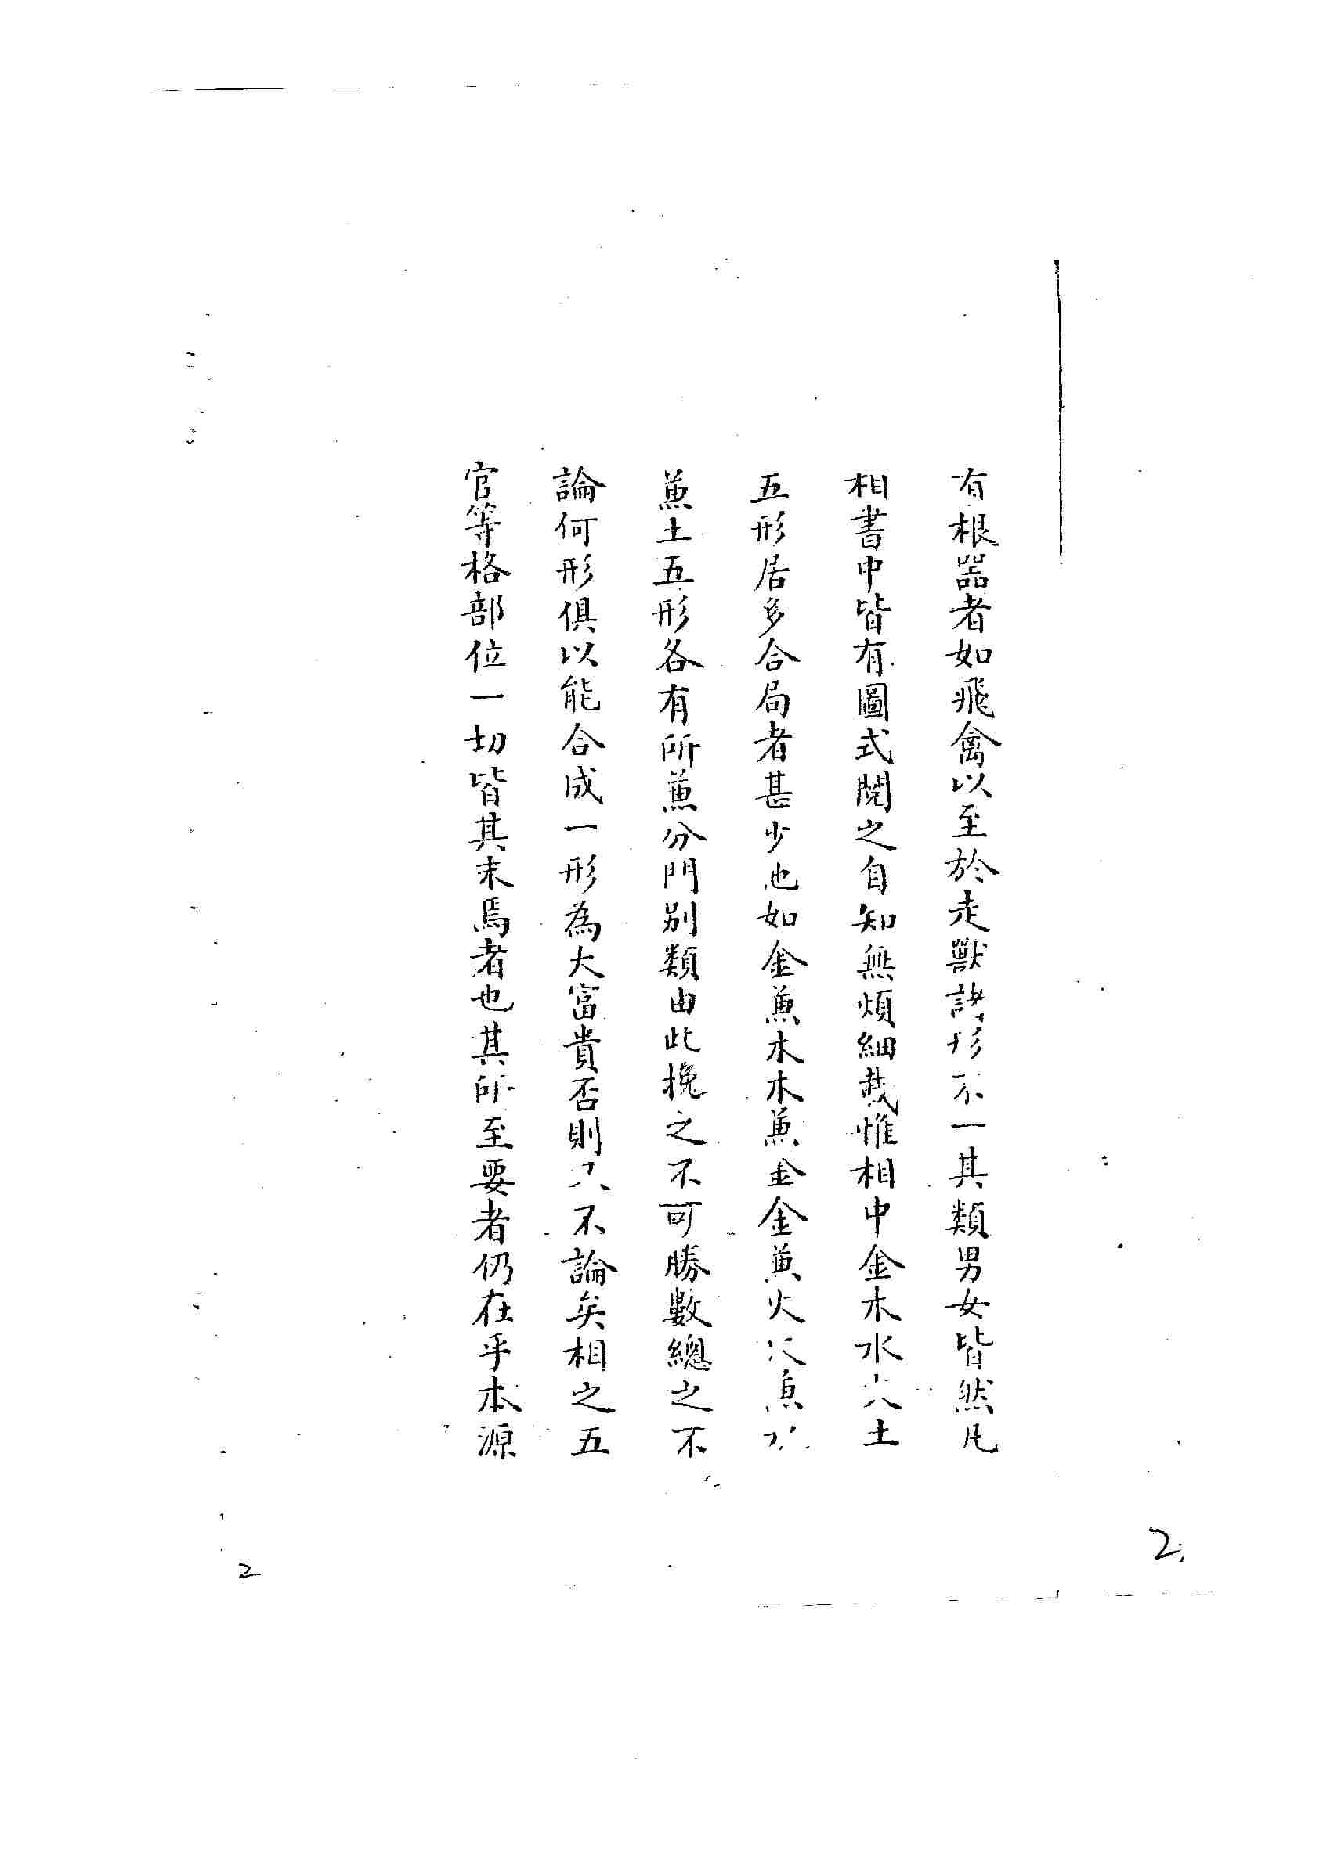 有根器者如飛禽以至於走獸諸形不一其類男女皆然凡
相書中皆有圖式閱之自知無煩細哉惟相中金木水火土
五形居多合局者甚少也如金蕙木木蕙金金蕙火火蕙
蕙土五形各有所蕙分門別類由此推之不可勝數總之不
論何形俱以能合成一形為大富貴否則不論矣相之五
官等格部位一切皆其末焉者也其所至要者仍在乎本源
2
2.